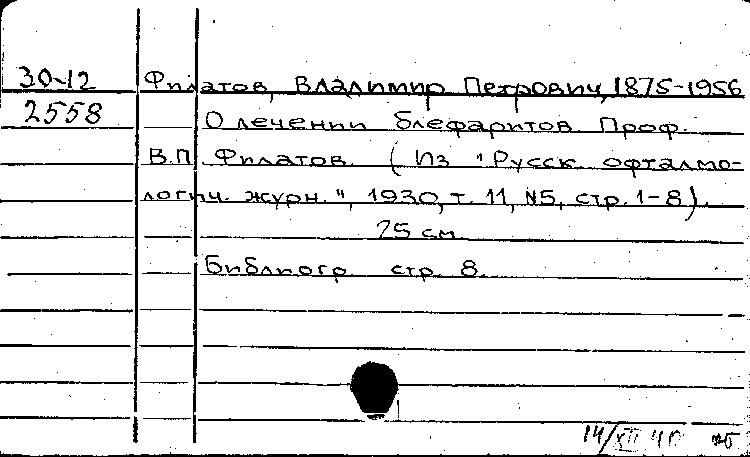 30-12 Филатов, Владимир Петрович, 1875-1956
2558 О лечении блефаритов. Проф.
В.П. Филатов. (Из "Русск. офталмо-
логич. журн.", 1930, т. 11, №5, стр. 1-8).
25 см.
Библиогр. стр. 8.
14/XII 40